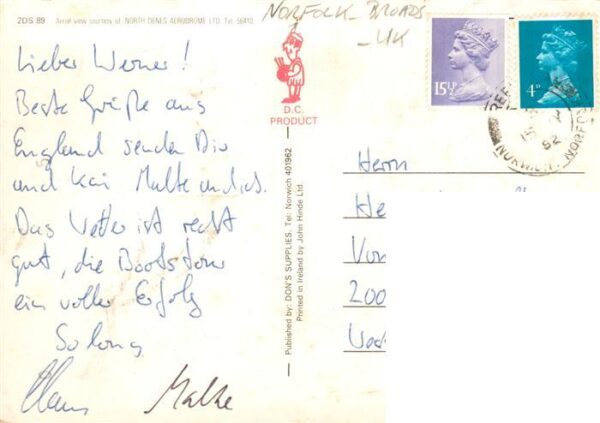 2DS 89 Aerial view courtesy of: NORTH DENES AERODROME LTD. Tel: 56410.
NORFOLK BROADS
- UK
Lieber Werner!
Beste Grüße aus
England senden Dir
und Kai Malte und ich.
Das Wetter ist recht
gut, die Bootstour
ein voller Erfolg
So long
Claus Malte
D.C.
PRODUCT
Published by: DON'S SUPPLIES. Tel: Norwich 401962
Printed in Ireland by John Hinde Ltd.
15½P
4P
92
NORWICH NORFOLK
Herrn
He
Von
200